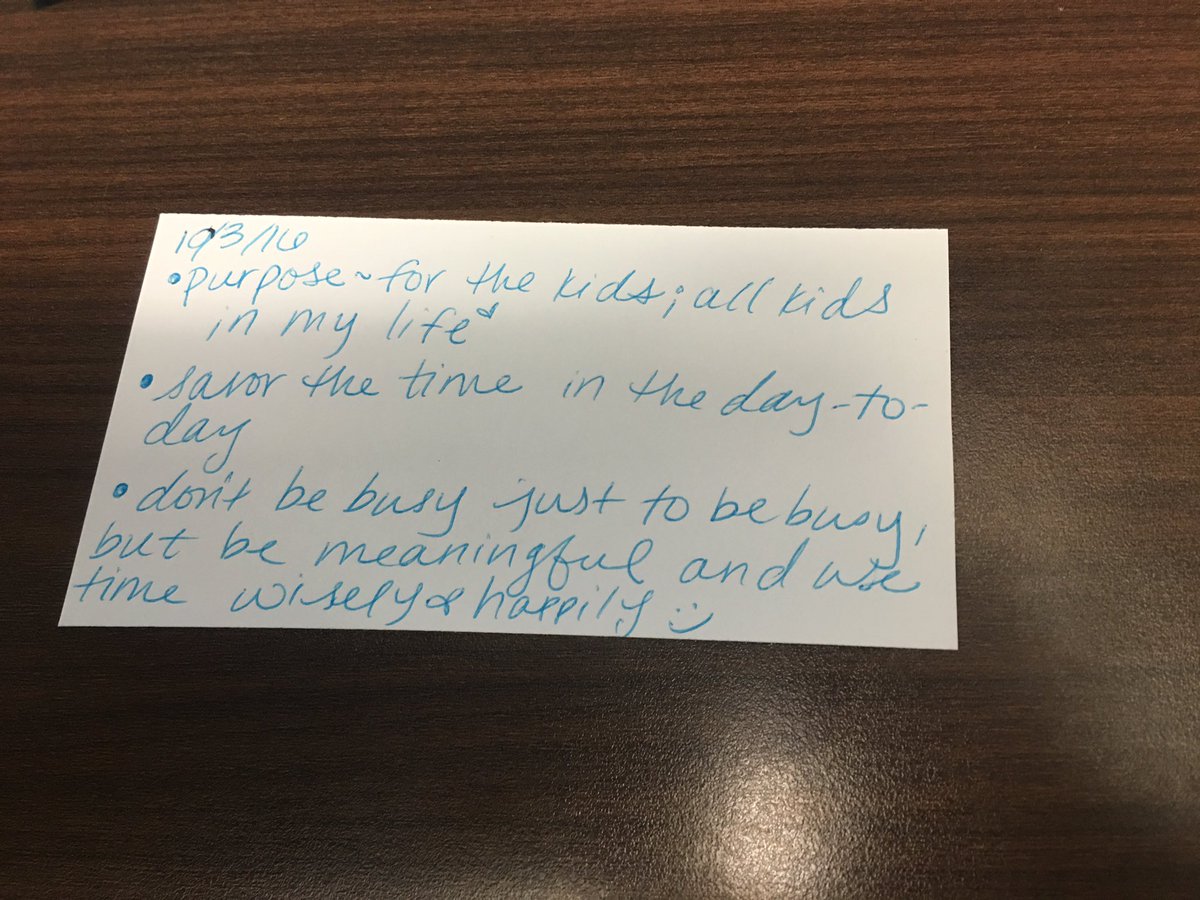 10/3/16
•purpose~for the kids; all kids
in my life
•savor the time in the day-to-
day
•don't be busy just to be busy,
but be meaningful and use
time wisely & happily :)